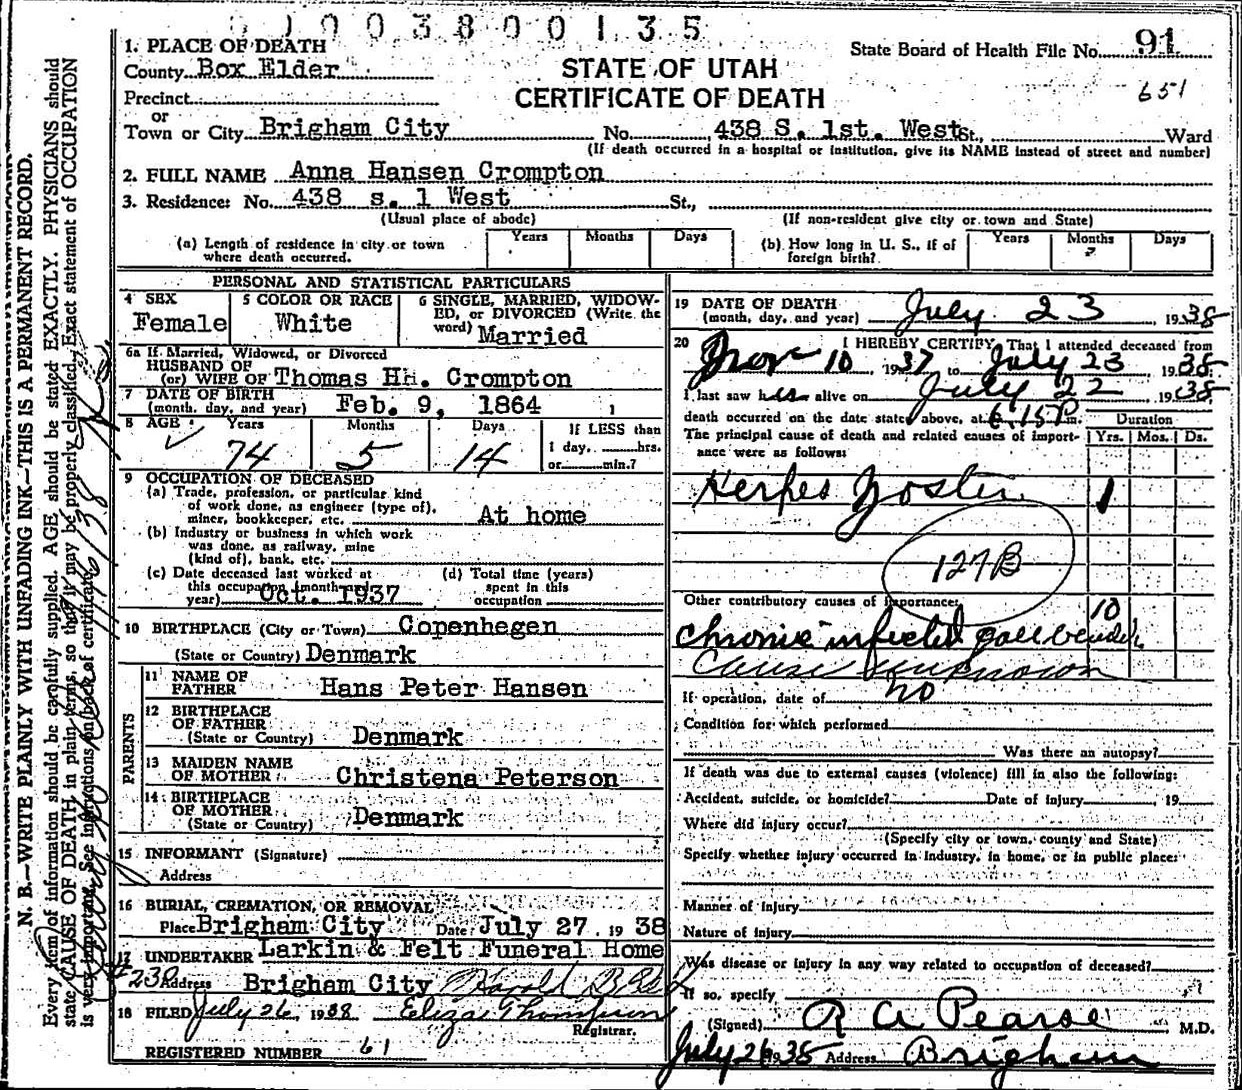 0 1 0 0 3 8 0 0 1 3 5
1. PLACE OF DEATH
County Box Elder
State Board of Health File No. 91
STATE OF UTAH
CERTIFICATE OF DEATH
651
Precinct
or
Town or City Brigham City No. 438 S. 1st. West St., Ward
(If death occurred in a hospital or institution, give its NAME instead of street and number)
2. FULL NAME Anna Hansen Crompton
3. Residence: No. 438 s. 1 West St.,
(Usual place of abode) (If non-resident give city or town and State)
(a) Length of residence in city or town where death occurred. Years Months Days
(b) How long in U. S., if of foreign birth? Years Months Days
PERSONAL AND STATISTICAL PARTICULARS
4 SEX Female
5 COLOR OR RACE White
6 SINGLE, MARRIED, WIDOWED, or DIVORCED (Write the word) Married
6a If Married, Widowed, or Divorced
HUSBAND OF
(or) WIFE OF Thomas HH. Crompton
7 DATE OF BIRTH
(month, day, and year) Feb. 9, 1864
8 AGE Years Months Days
74 5 14
If LESS than
1 day, hrs.
or min.?
9 OCCUPATION OF DECEASED
(a) Trade, profession, or particular kind
of work done, as engineer (type of),
miner, bookkeeper, etc. At home
(b) Industry or business in which work
was done, as railway, mine
(kind of), bank, etc.
(c) Date deceased last worked at
this occupation (month and
year) Oct. 1937
(d) Total time (years)
spent in this
occupation
10 BIRTHPLACE (City or Town) Copenhegen
(State or Country) Denmark
PARENTS
11 NAME OF
FATHER Hans Peter Hansen
12 BIRTHPLACE
OF FATHER
(State or Country) Denmark
13 MAIDEN NAME
OF MOTHER Christena Peterson
14 BIRTHPLACE
OF MOTHER
(State or Country) Denmark
15 INFORMANT (Signature)
Address
16 BURIAL, CREMATION, OR REMOVAL
Place Brigham City Date July 27 19 38
17 UNDERTAKER Larkin & Felt Funeral Home
230 Address Brigham City Harold B Felt
18 FILED July 26 1938 Eliza Thompson
Registrar.
REGISTERED NUMBER 61
19 DATE OF DEATH
(month, day, and year) July 23, 1938
20 I HEREBY CERTIFY, That I attended deceased from
Nov 10, 1937 to July 23 1938
I last saw her alive on July 22, 1938
death occurred on the date stated above, at 6.15P m.
The principal cause of death and related causes of importance were as follows:
Duration
Yrs. Mos. Ds.
Herpes Zoster 1
127B
Other contributory causes of importance:
10
Chronic infected gall bladder
Cause unknown
If operation, date of no
Condition for which performed
Was there an autopsy?
If death was due to external causes (violence) fill in also the following:
Accident, suicide, or homicide? Date of injury , 19
Where did injury occur?
(Specify city or town, county and State)
Specify whether injury occurred in industry, in home, or in public place:
Manner of injury
Nature of injury
Was disease or injury in any way related to occupation of deceased?
If so, specify
(Signed) R A Pearse M.D.
July 26 1938 Address Brigham
N. B.—WRITE PLAINLY WITH UNFADING INK—THIS IS A PERMANENT RECORD.
Every item of information should be carefully supplied. AGE should be stated EXACTLY. PHYSICIANS should
state CAUSE OF DEATH in plain terms, so that it may be properly classified. Exact statement of OCCUPATION
is very important. See instructions on back of certificate.